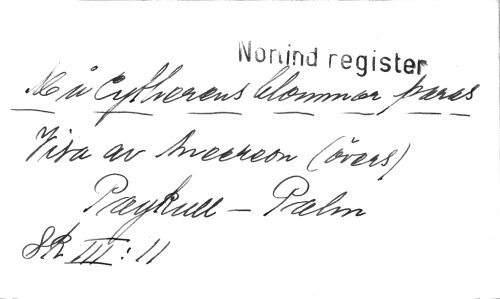 Norlind register
Må Cytherens blommor paras
Visa av Anacreon (övers)
Paykull – Palm
SK III: 11